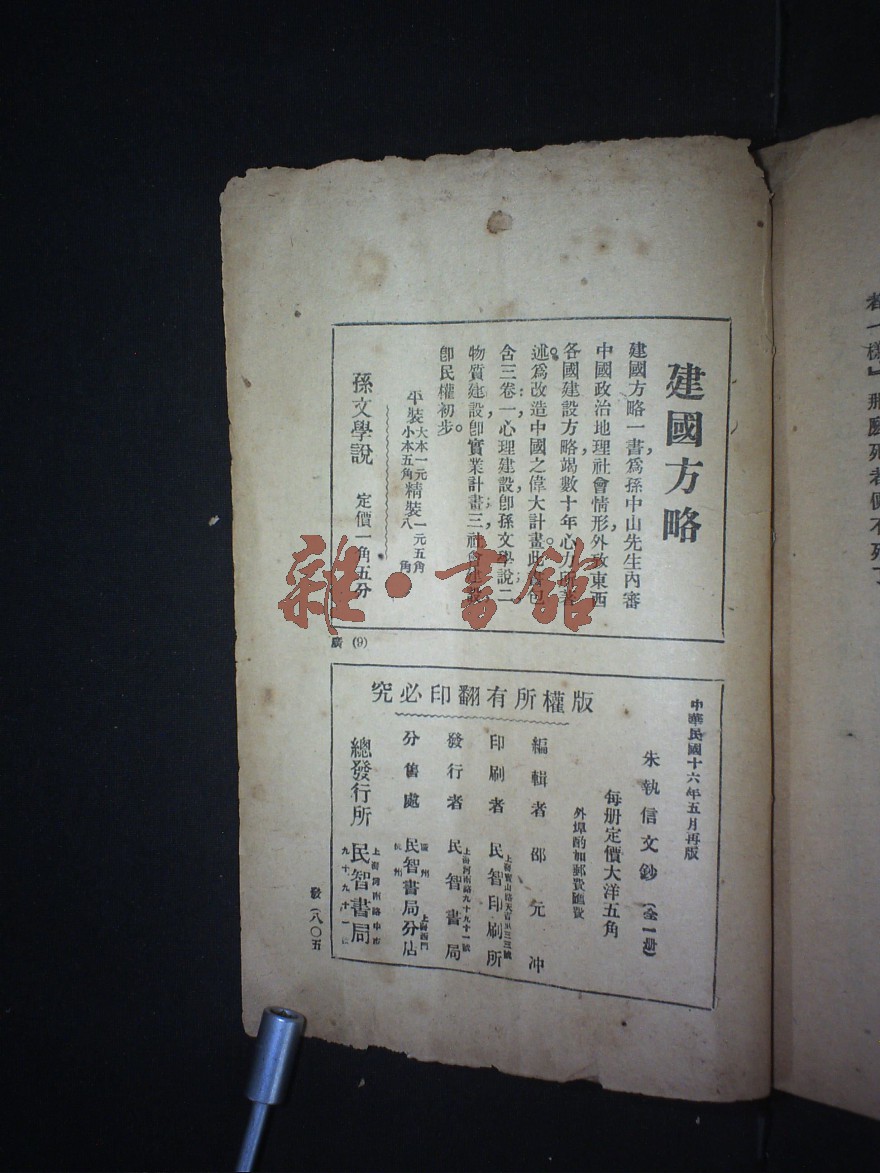 建國方略
建國方略一書，爲孫中山先生內審
中國政治地理社會情形，外攷東西
各國建設方略，竭數十年心力所著
述。爲改造中國之偉大計畫。此書包
含三卷：一，心理建設，卽孫文學說；二，
物質建設，卽實業計畫；三，社會建設，
卽民權初步。
平裝大本一元小本五角精裝一元五角八角
孫文學說 定價一角五分
廣 (9)
版權所有翻印必究
中華民國十六年五月再版
朱執信文鈔（全一册）
每册定價大洋五角
外埠酌加郵費匯費
編輯者 邵元冲
印刷者 民智印刷所
發行者 上海河南路九十九十一號 民智書局
分售處 廣州 杭州 民智書局分店 上海西門
總發行所 上海河南路中市 民智書局 九十九十一
發（八〇五
者一樣』那麽死者便不死了
雜·書館